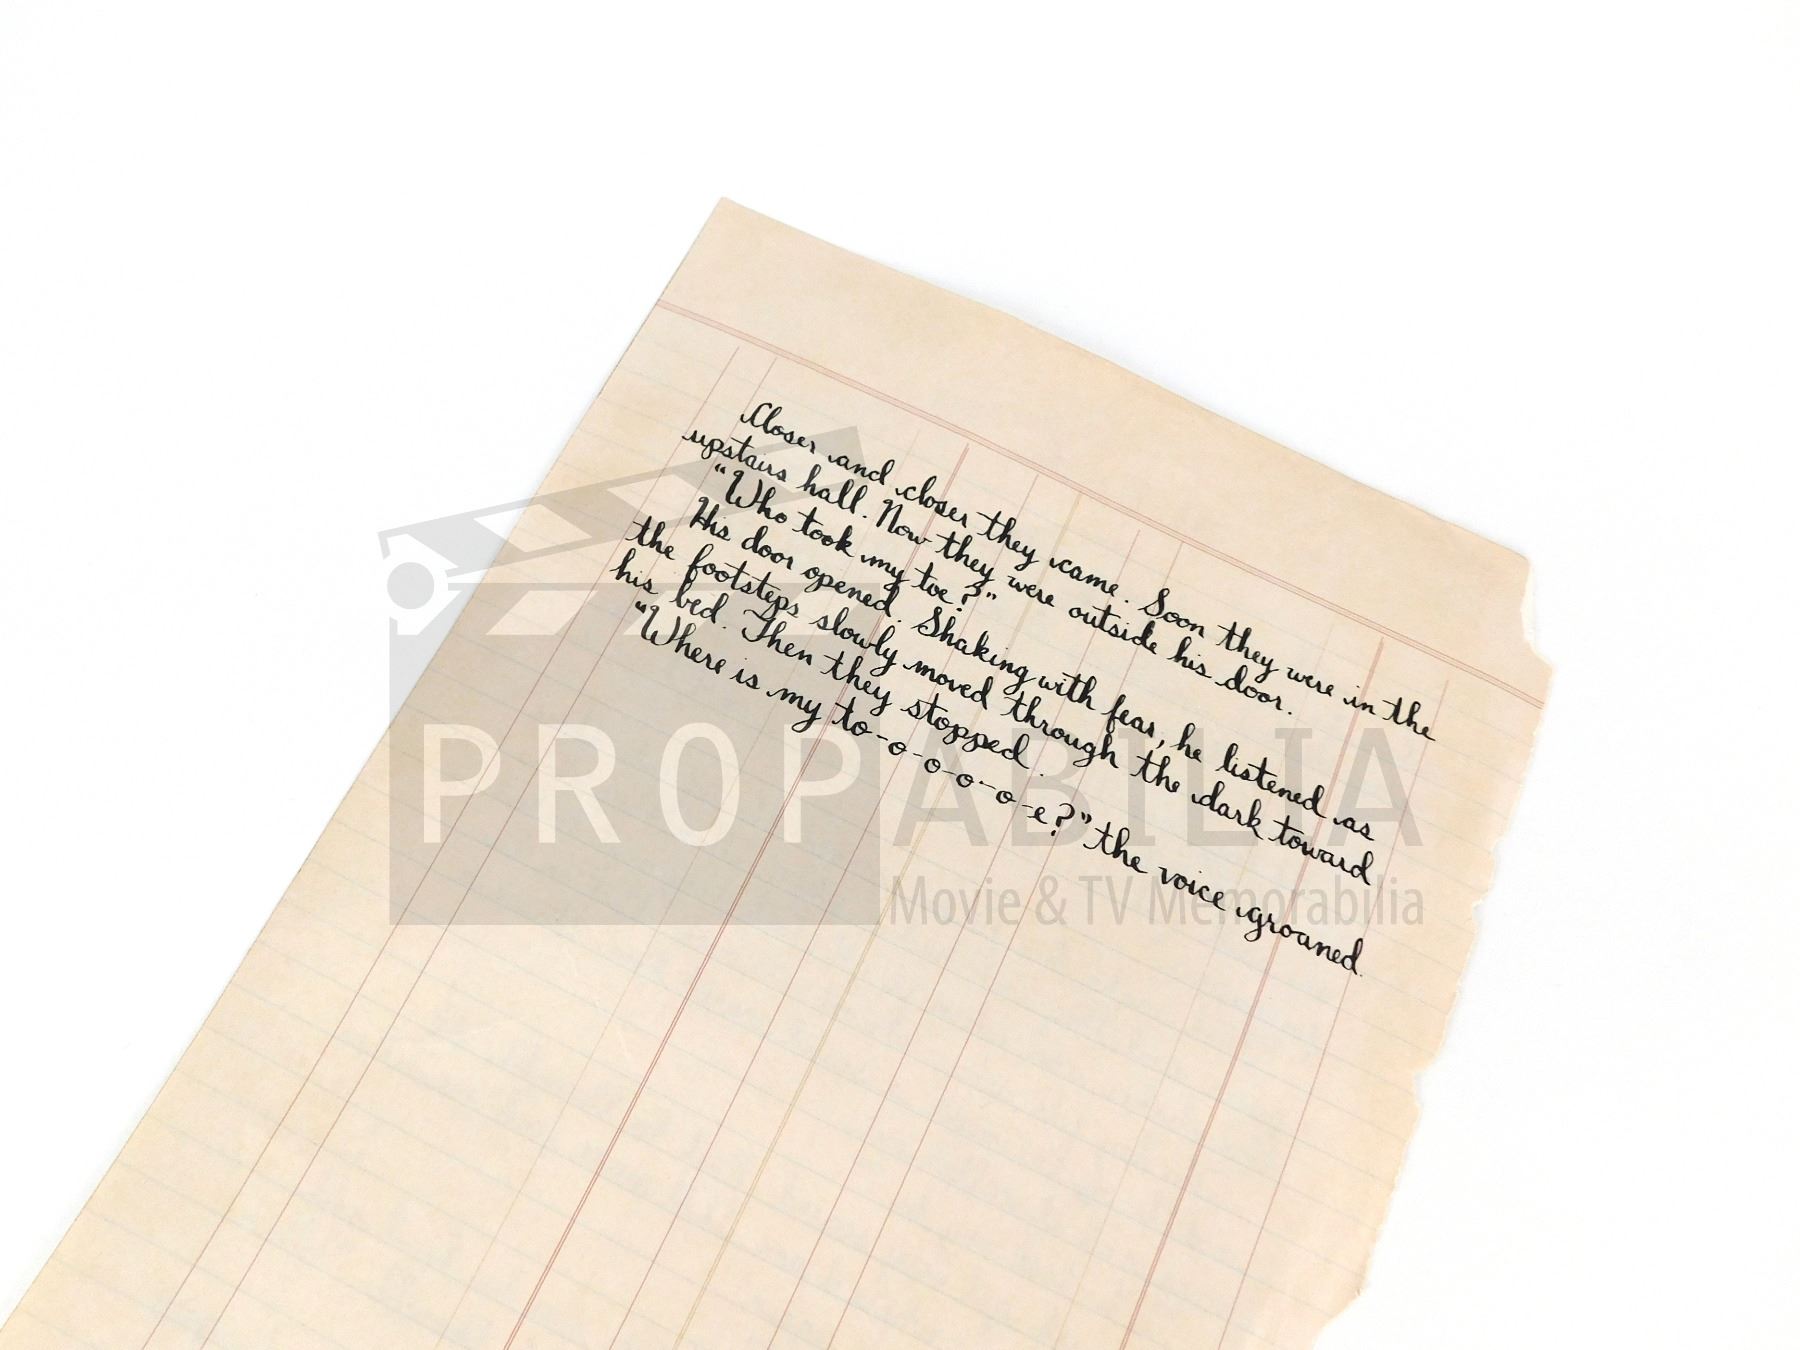 Closer and closer they came. Soon they were in the
upstairs hall. Now they were outside his door.
"Who took my toe?"
His door opened. Shaking with fear, he listened as
the footsteps slowly moved through the dark toward
his bed. Then they stopped.
"Where is my to-o-o-o-o-e?" the voice groaned.
PROPABILIA
Movie & TV Memorabilia